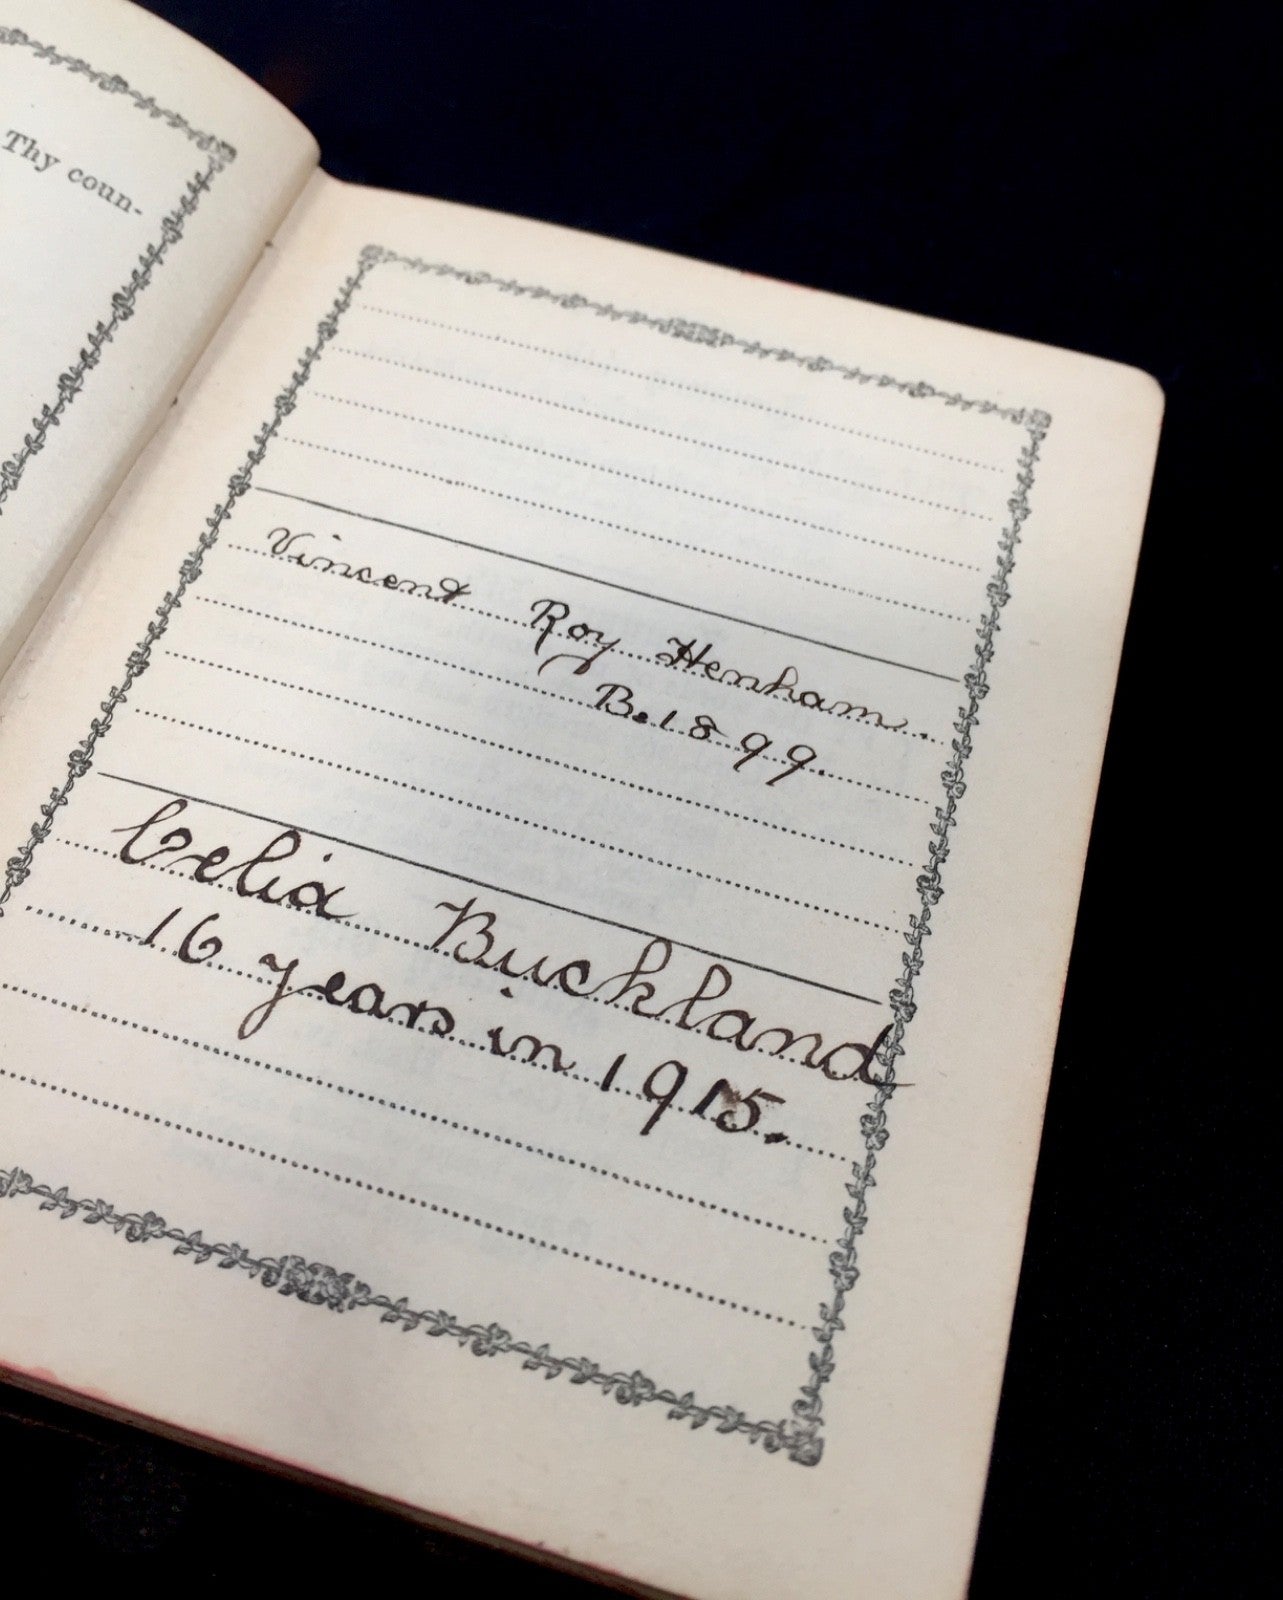 Thy coun-
Vincent Roy Henham.
B. 1899.
Celia Buckland
16 years in 1915.